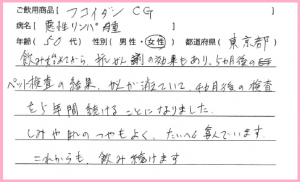 ご使用商品【 フコイダン CG
病名【 悪性リンパ腫
年齢( 50 代) 性別( 男性・女性 ) 都道府県( 東京都
飲みはじめてから、抗ガン剤の効果もあり、5ヵ月後の
ペット検査の結果、ガンが消えていて、4ヵ月後の検査
を5年間続けることになりました。
しみや肌のつやもよく、たいへん喜んでいます。
これからも、飲み続けます